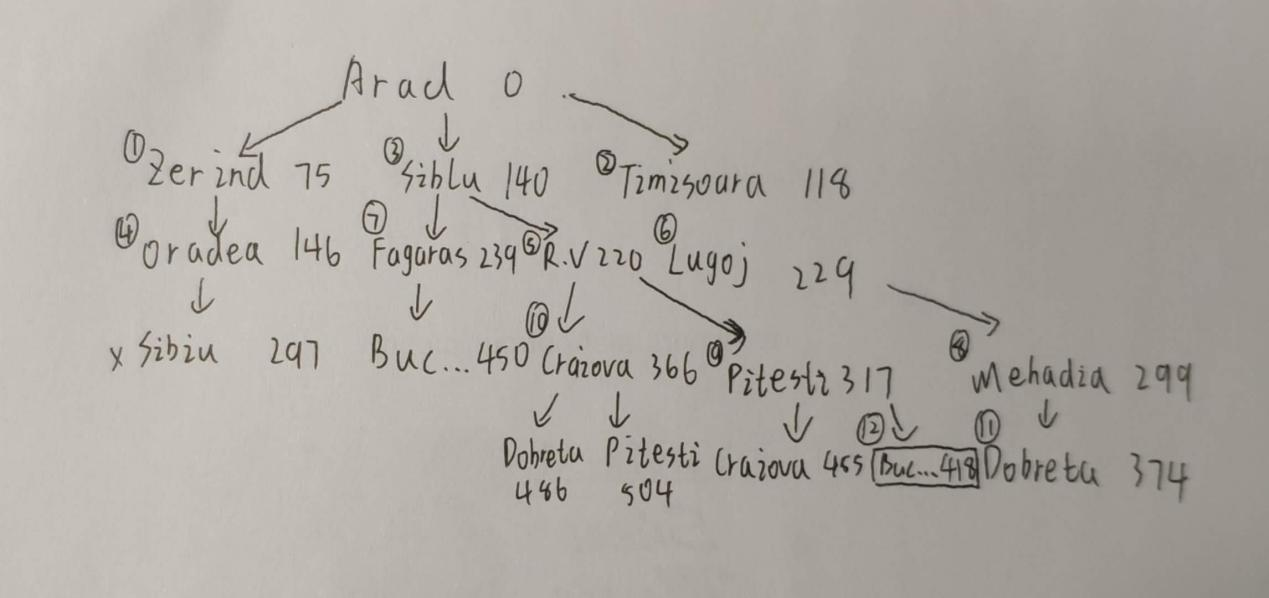 Arad 0
① Zerind 75 ③ Siblu 140 ② Timisoara 118
④ Oradea 146 ⑦ Fagaras 239 ⑤ R.V 220 ⑥ Lugoj 229
x Sibiu 297 Buc... 450 ⑩ Craiova 366 ⑨ Pitesti 317 ⑧ Mehadia 299
Dobreta Pitesti Craiova 455 ⑫ Buc...418 ⑪ Dobreta 374
486 504